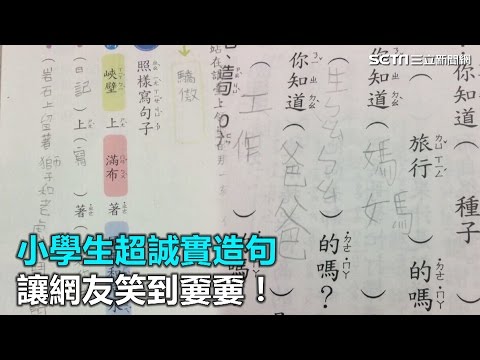 SETN 三立新聞網
你知道（
種子
旅行
）的嗎
你知道（媽媽）
（生ㄅㄠㄅㄠ）的嗎？
你知道（爸爸）
（工作
造句
驕傲
照樣寫句子
峽壁 上 滿布 著
（日記）上（寫）著（
（岩石上留著獅子和老
小學生超誠實造句
讓網友笑到嫑嫑！